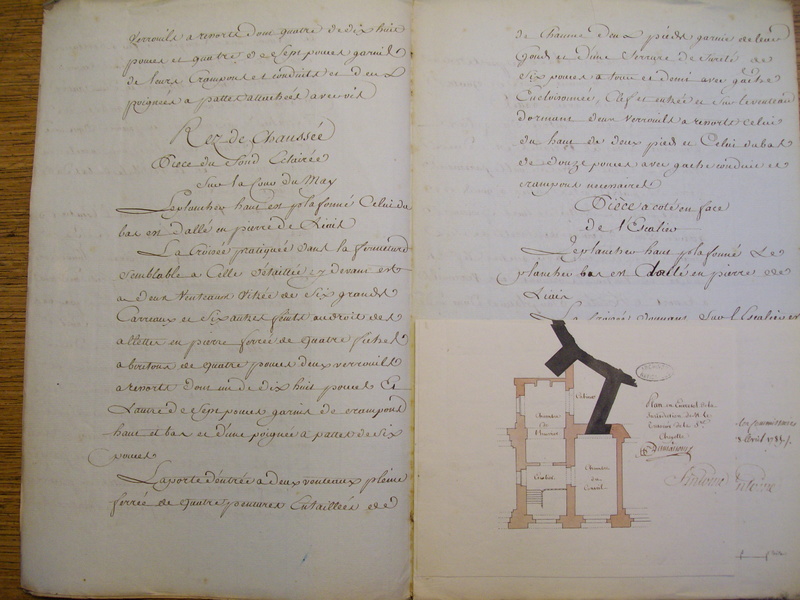 Verrouils a resorts dont quatre de dix huit
pouces et quatre de sept pouces garnis
de leurs Crampons et conduits et deux
poignées a pattes attachées avec vis
Rez de Chaussée
Piece du fond Eclairée
Sur la Cour du May
Le plancher haut est plafonné Celui du
bas est dallé en pierre de Liais
La Croisée pratiquée dans la fermeture
Semblable a Celle detaillée cy devant est
a deux Venteaux Vitrée de Six grands
Carreaux et Six autres petits au droit des
allettes en pierre ferrée de quatre fiches
a broutons de quatre pouces deux verrouils
a resorts dont un de dix huit pouces Et
L'autre de Sept pouces garnis de crampons
haut et bas et d'une poignée a pattes de Six
pouces.
La porte d'entrée a deux venteaux pleine
ferrée de quatre pentures Entaillées de
de Chacune deux pieds garnie de leurs
Gonds et d'une Serrure de Sureté de
Six pouces a tour et demi avec gache
Encloisonnée, Clef et entrée et Sur le venteau
dormant deux verrouils a resorts celui
du haut de deux pieds et Celui du bas
de douze pouces avec gache conduit et
crampons necessaires
Pièce a coté en face
de l'Escalier
Le plancher haut plafonné Le
plancher bas est dallé en pierre de
Liais
La Croisée donnant Sur l'Escalier est
Cabinet
Chambre
du
Escalier
Chambre
du
Conseil
Plan au
jurisdiction de
Terrier de la Ste
Chapelle
Antoine